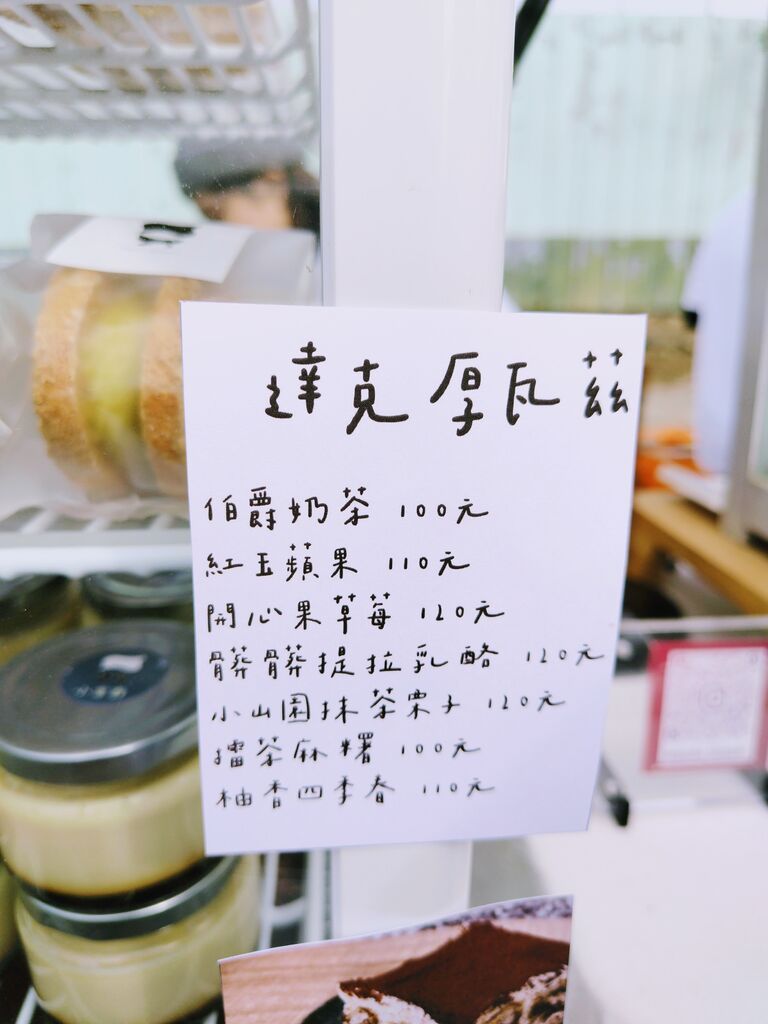 達克厚瓦茲
伯爵奶茶 100元
紅玉蘋果 110元
開心果草莓 120元
髒髒提拉乳酪 120元
小山園抹茶栗子 120元
擂茶麻糬 100元
柚香四季春 110元